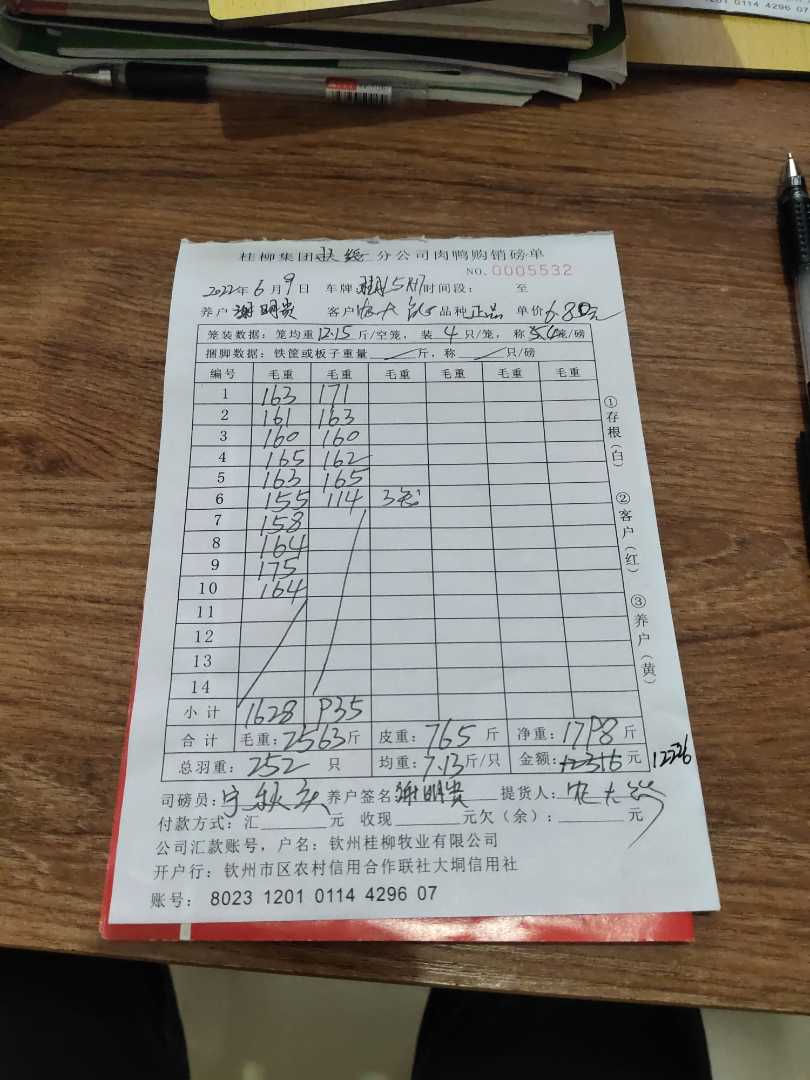 1201 0114 4296 07
桂柳集团扶绥分公司肉鸭购销磅单
NO. 0005532
2022年6月9日 车牌: 时间段: 至
养户 谢明贵 客户 农大 品种 正品 单价 6.80元
笼装数据: 笼均重 12.15 斤/空笼, 装 4 只/笼, 称 笼/磅
捆脚数据: 铁筐或板子重量 斤, 称 只/磅
编号 毛重 毛重 毛重 毛重 毛重 毛重
1 163 171
2 161 163
3 160 160
4 165 162
5 163 165
6 155 114 3笼
7 158
8 164
9 175
10 164
11
12
13
14
小计 1628 935
合计 毛重: 2563斤 皮重: 765 斤 净重: 1798斤
总羽重: 252 只 均重: 7.13斤/只 金额: 元 12226
司磅员: 宁 养户签名 谢明贵 提货人: 农大
付款方式: 汇 元 收现 元欠(余): 元
公司汇款账号, 户名: 钦州桂柳牧业有限公司
开户行: 钦州市区农村信用合作联社大垌信用社
账号: 8023 1201 0114 4296 07
①存根(白) ②客户(红) ③养户(黄)